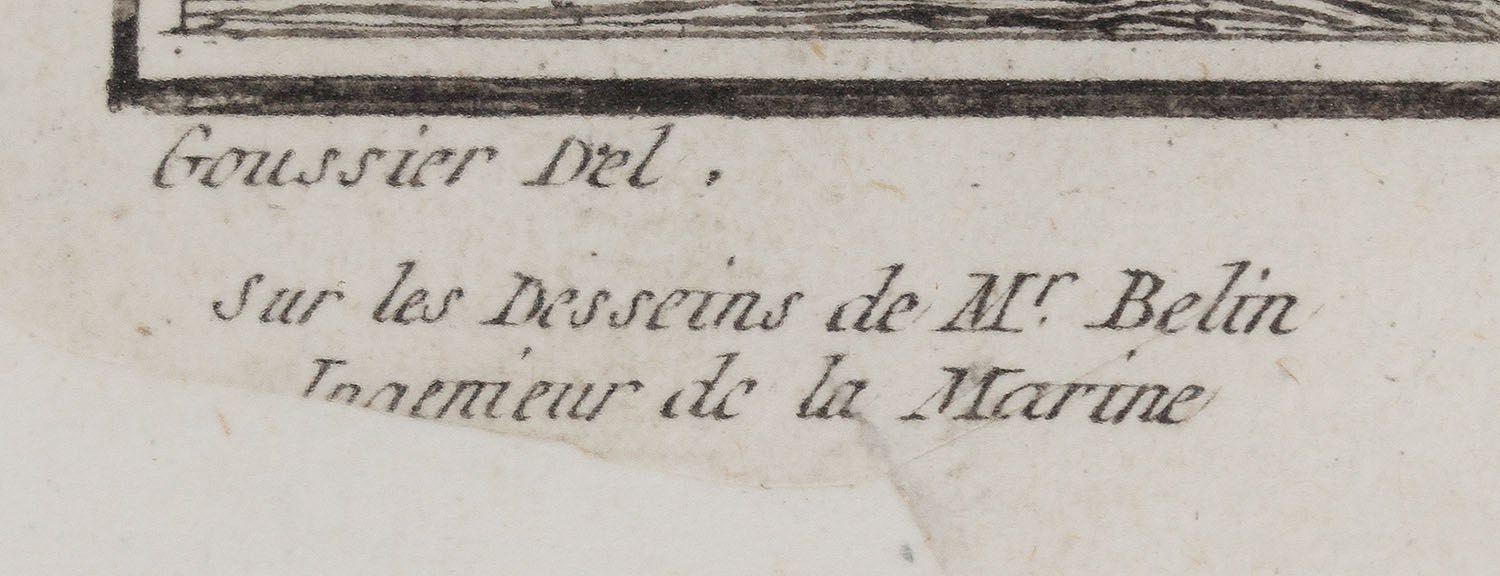 Goussier Del.
sur les Desseins de Mr. Belin
Ingenieur de la Marine